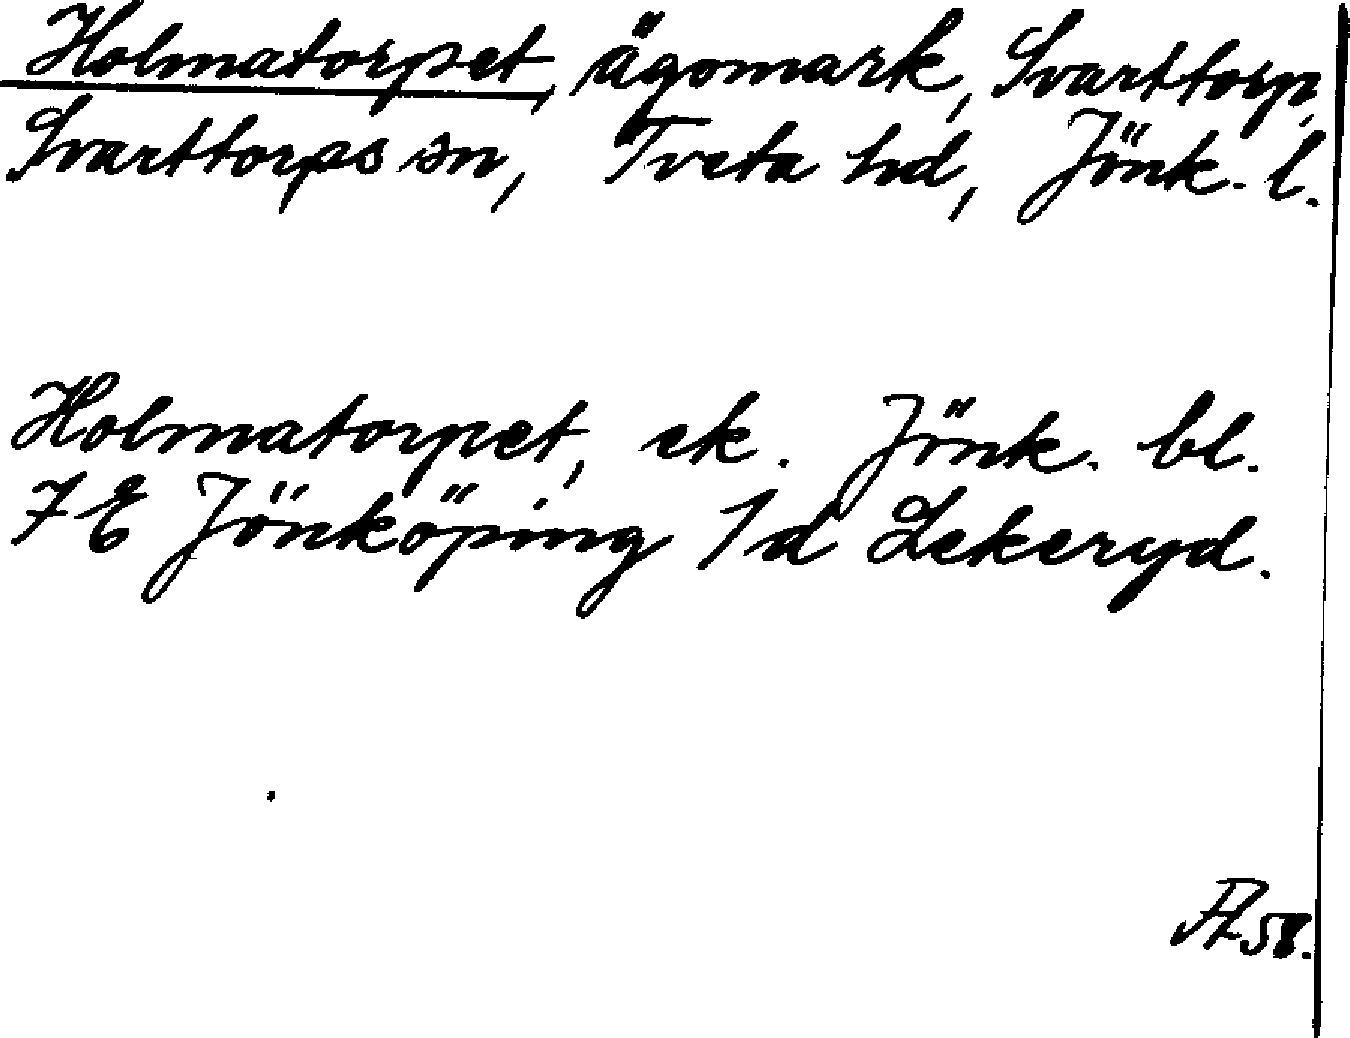 Holmatorpet, ägomark, Svarttorp,
Svarttorps sn, Tveta hd, Jönk. l.
Holmatorpet, ek. Jönk. bl.
7E Jönköping 1d Lekeryd.
58.